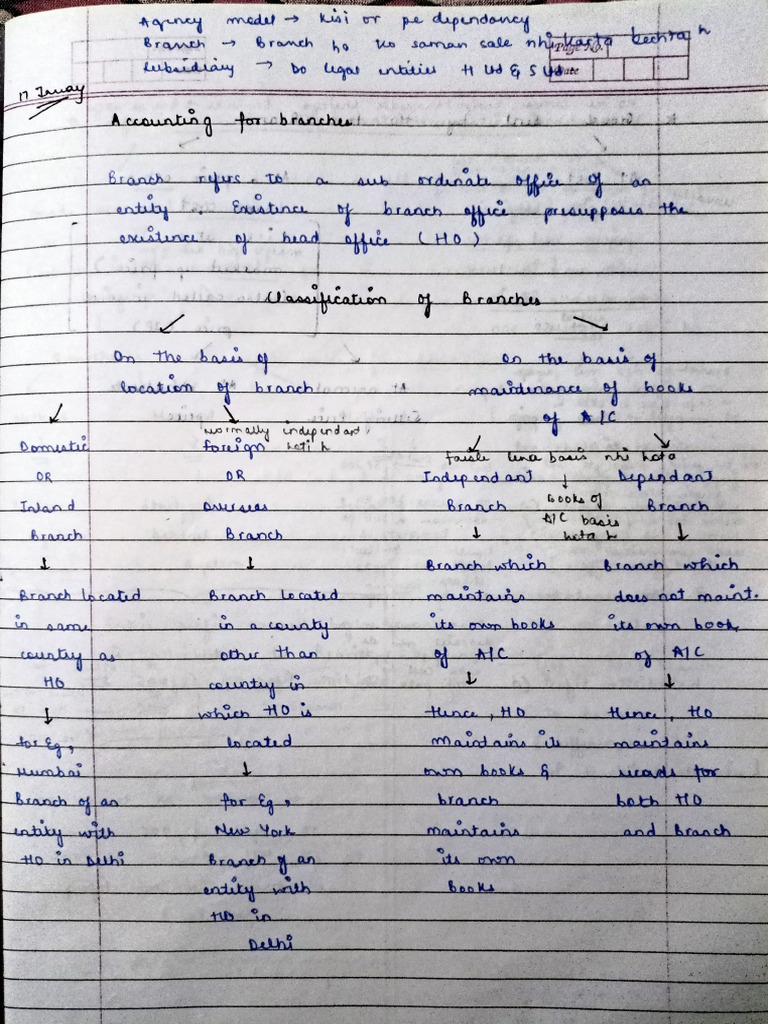 Agency model → Kisi or pe dependancy
Branch → Branch ho ko saman sale nhi karta bechta h
Page No.
Subsidiary → Do legal entities H Ltd & S Ltd
Date
17
Accounting for branches
Branch refers to a sub ordinate office of an
entity. Existence of branch office presupposes the
existence of head office (HO)
Classification of Branches
On the basis of
location of branch
On the basis of
maintenance of books
of A/C
Domestic
OR
Inland
Branch
↓
Branch located
in same
country as
HO
↓
for Eg,
Mumbai
Branch of an
entity with
HO in Delhi
normally independant
hoti h
foreign
OR
overseas
Branch
↓
Branch located
in a county
other than
country in
which HO is
located
↓
for Eg,
New York
Branch of an
entity with
HO in
Delhi
faisle lena basis nhi hota
↓
Books of
A/C basis
hota h
Independant
Branch
↓
Branch which
maintains
its own books
of A/C
↓
Hence, HO
maintains its
own books &
branch
maintains
its own
Books
Dependant
Branch
↓
Branch which
does not maint.
its own book
of A/C
↓
Hence, HO
maintains
records for
both HO
and Branch